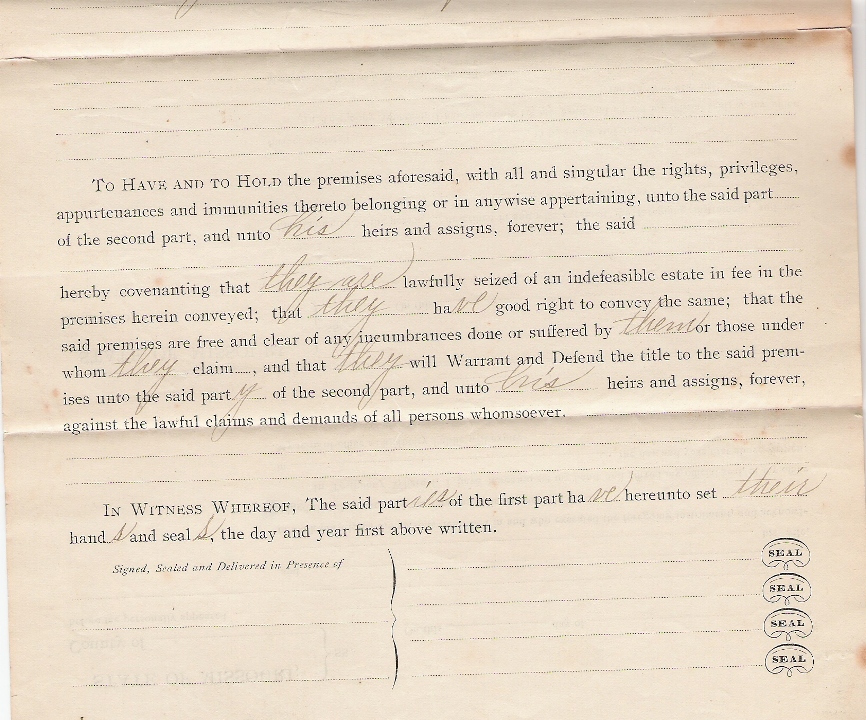 To Have and to Hold the premises aforesaid, with all and singular the rights, privileges,
appurtenances and immunities thereto belonging or in anywise appertaining, unto the said part
of the second part, and unto his heirs and assigns, forever; the said
hereby covenanting that they are lawfully seized of an indefeasible estate in fee in the
premises herein conveyed; that they have good right to convey the same; that the
said premises are free and clear of any incumbrances done or suffered by them or those under
whom they claim, and that they will Warrant and Defend the title to the said prem-
ises unto the said party of the second part, and unto his heirs and assigns, forever,
against the lawful claims and demands of all persons whomsoever.
In Witness Whereof, The said parties of the first part have hereunto set their
hands and seals, the day and year first above written.
Signed, Sealed and Delivered in Presence of
SEAL
SEAL
SEAL
SEAL